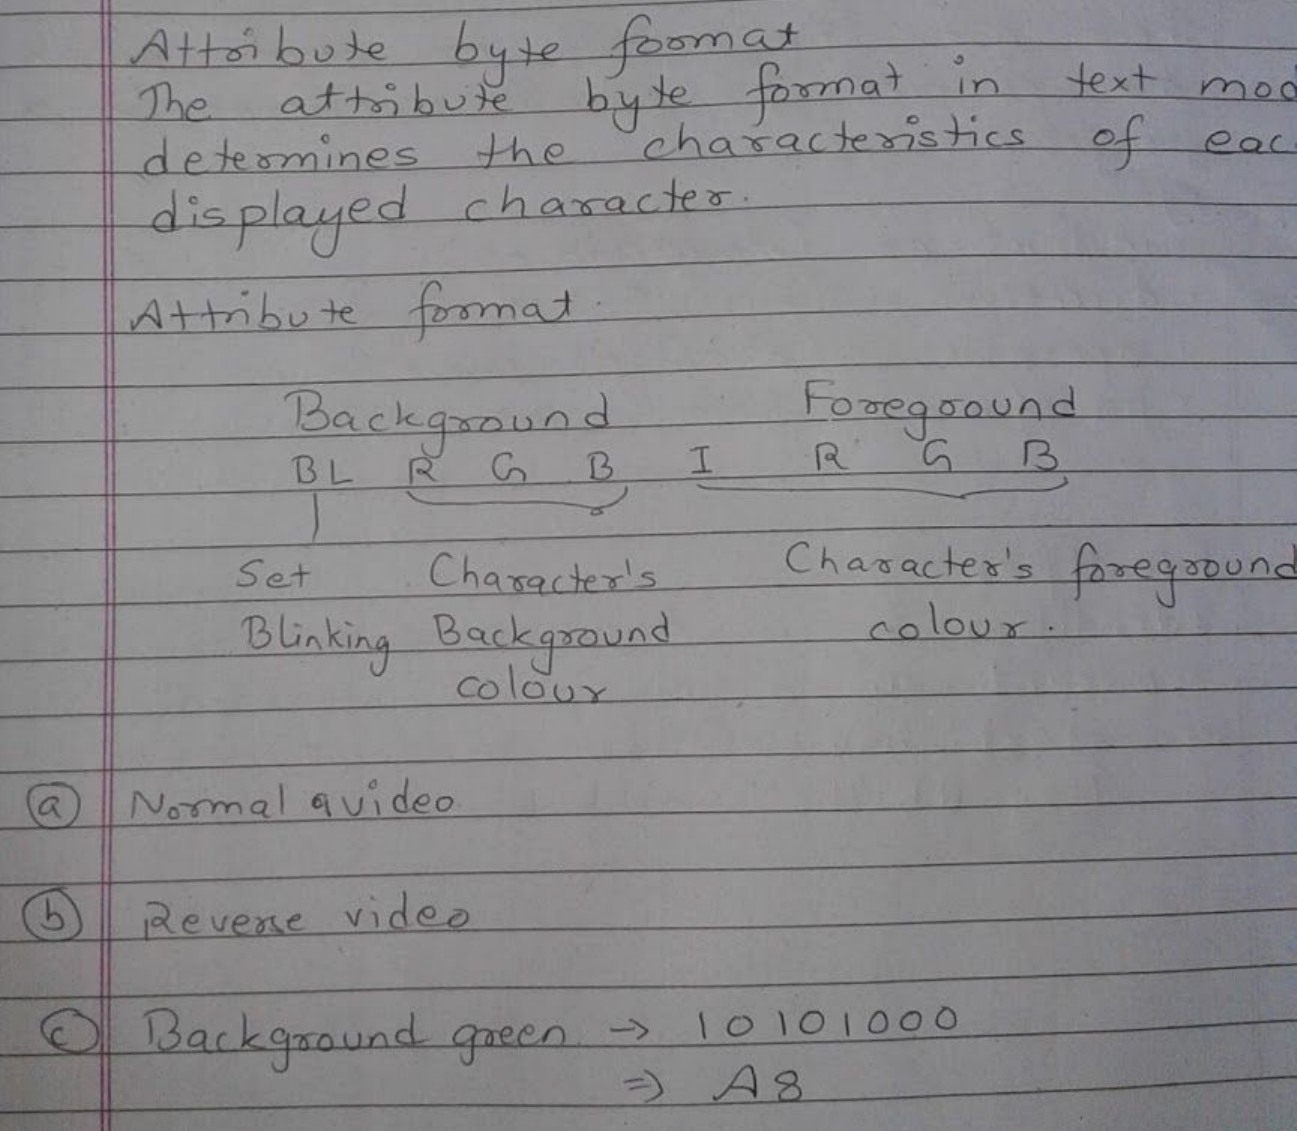 Attribute byte format
The attribute byte format in text mod
determines the characteristics of eac
displayed character.
Attribute format.
Background Foreground
BL R G B I R G B
Set Character's Character's foreground
Blinking Background colour.
colour
(a) Normal a video
(b) Reverse video
(c) Background green → 10101000
⇒ A8